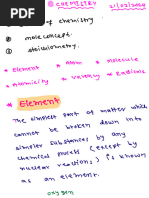 CHEMISTRY 21/05/2020
① of chemistry
② mole concept.
③ stoichiometry.
* Element * Atom * molecule
* Atomicity * Valency * Radicals
* Element
The simplest part of matter which
cannot be broken down into
simpler substances by any
chemical process (except by
nuclear reaction,) is known
as an element.
oxygen